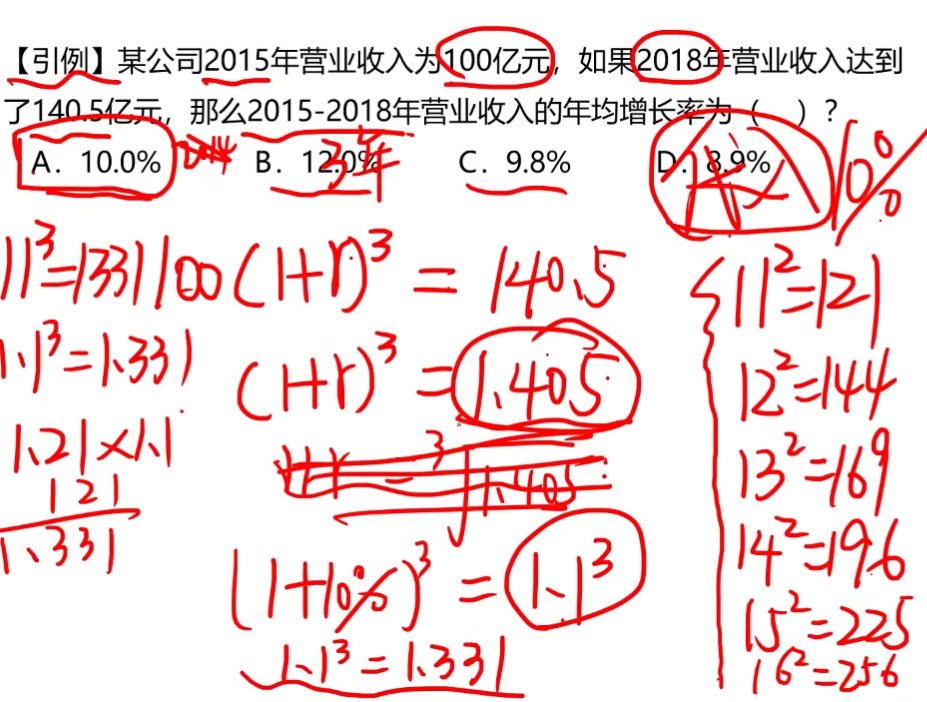 【引例】某公司2015年营业收入为100亿元，如果2018年营业收入达到
了140.5亿元，那么2015-2018年营业收入的年均增长率为（ ）?
A. 10.0% B. 12.0% C. 9.8% D. 8.9%
3年
10%
11³=1331
100(1+r)³ = 140.5
11²=121
1.1³=1.331
(1+r)³ = 1.405
12²=144
1.21×1.1
121
1.331
1+r = ³√1.405
13²=169
(1+10%)³ = 1.1³
14²=196
1.1³ = 1.331
15²=225
16²=256